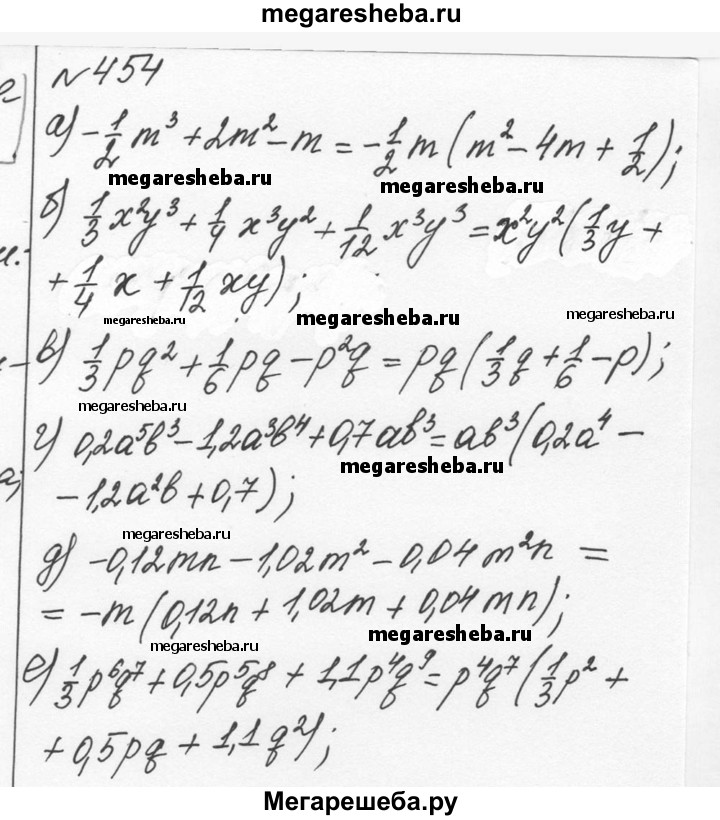 megaresheba.ru
№454
а) -1/2 m³ + 2m² - m = -1/2 m (m² - 4m + 1/2);
megaresheba.ru megaresheba.ru
б) 1/3 x²y³ + 1/4 x³y² + 1/12 x³y³ = x²y² (1/3 y +
+ 1/4 x + 1/12 xy);
megaresheba.ru megaresheba.ru megaresheba.ru
в) 1/3 pq² + 1/6 pq - p²q = pq (1/3 q + 1/6 - p);
megaresheba.ru
г) 0,2a⁵b³ - 1,2a³b⁴ + 0,7ab³ = ab³ (0,2a⁴ -
megaresheba.ru
- 1,2a²b + 0,7);
megaresheba.ru megaresheba.ru
д) -0,12mn - 1,02m² - 0,04m²n =
= -m (0,12n + 1,02m + 0,04mn);
megaresheba.ru megaresheba.ru
е) 1/3 p⁶q⁷ + 0,5p⁵q⁸ + 1,1p⁴q⁹ = p⁴q⁷ (1/3 p² +
+ 0,5pq + 1,1q²);
Мегарешеба.ру